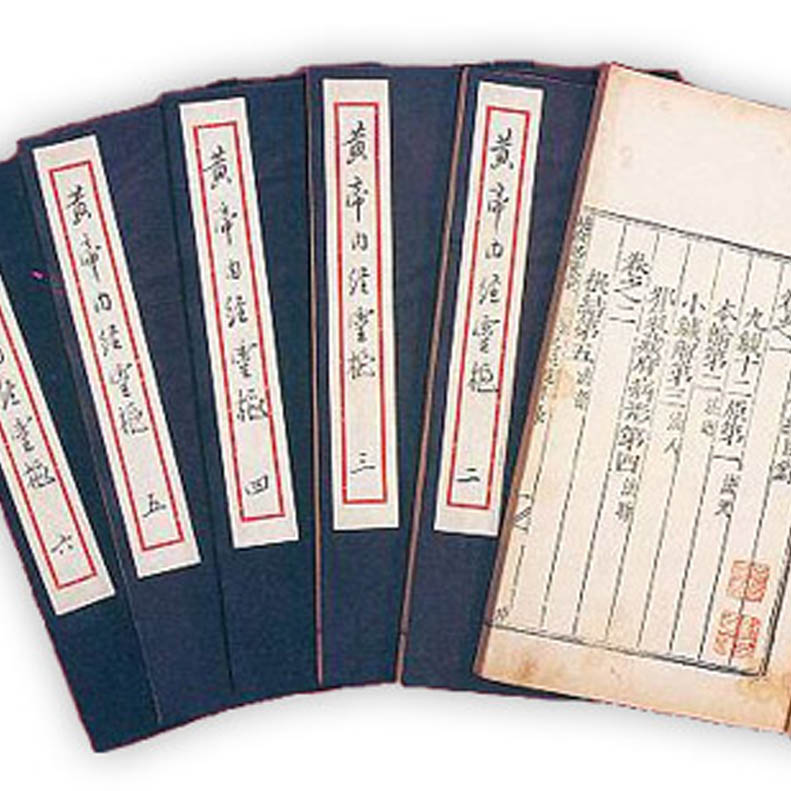 卷之一
九鍼十二原第一 法天
本輸第二 法地
小鍼解第三 法人
邪氣藏府病形第四 法時
卷之二
根結第五 法音
黃帝內經靈樞 二
黃帝內經靈樞 三
黃帝內經靈樞 四
黃帝內經靈樞 五
內經靈樞 六